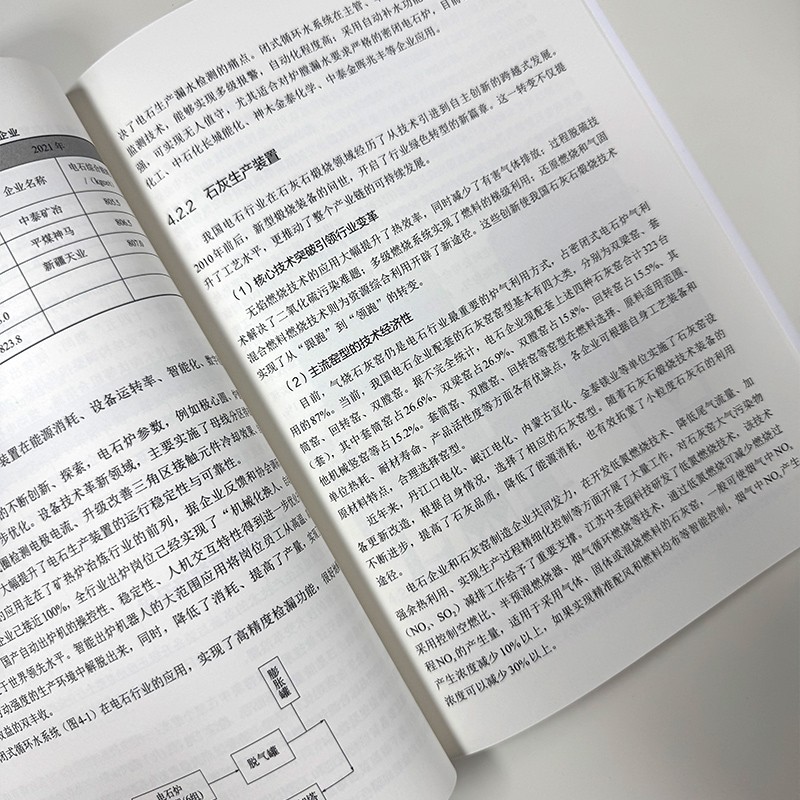 企业
2021年
企业名称
电石综合能
/（kgce/t
中泰矿冶
805.5
平煤神马
806.5
新疆天业
807.8
3.0
823.8
装置在能源消耗、设备运转率、智能化、
的不断创新、探索，电石炉参数，例如极心圆、
步优化。设备技术革新领域，主要实施了母线分区
流圈检测电极电流、升级改善三角区接触元件冷却效果、
大幅提升了电石生产装置的运行稳定性与可靠性。
的应用走在了矿热炉冶炼行业的前列，据企业反馈和协会
企业已接近100%，全行业出炉岗位已经实现了“机械化换人、
国产自动出炉机的操控性、稳定性、人机交互特性得到进一步
于世界领先水平。智能出炉机器人的大范围应用将岗位员工从高温、
动强度的生产环境中解脱出来，同时，降低了消耗、提高了产量，
效益的双丰收。
闭式循环水系统（图4-1）在电石行业的应用，实现了高精度检漏功能，
膨胀罐
脱气罐
电石炉
决了电石生产漏水检测的痛点，闭式循环水系统在主管、
监测技术，能够实现多级报警，自动化程度高，采用自动补水功能
强，可实现无人值守，尤其适合对炉膛漏水要求严格的密闭电石炉，目前
化工、中石化长城能化、神木金泰化学、中泰金晖兆丰等企业应用。
4.2.2 石灰生产装置
我国电石行业在石灰石煅烧领域经历了从技术引进到自主创新的跨越式发展。
2010年前后，新型煅烧装备的问世，开启了行业绿色转型的新篇章。这一转变不仅提
升了工艺水平，更推动了整个产业链的可持续发展。
（1）核心技术突破引领行业变革
无焰燃烧技术的应用大幅提升了热效率，同时减少了有害气体排放；过程脱硫技
术解决了二氧化硫污染难题；多级燃烧系统实现了燃料的梯级利用，还原燃烧和气固
混合燃料燃烧技术则为资源综合利用开辟了新途径。这些创新使我国石灰石煅烧技术
实现了从“跟跑”到“领跑”的转变。
（2）主流窑型的技术经济性
目前，气烧石灰窑仍是电石行业最重要的炉气利用方式，占密闭式电石炉气利
用的87%。当前，我国电石企业配套的石灰窑窑型基本有四大类，分别为双梁窑、套
筒窑、回转窑、双膛窑。据不完全统计，电石企业现配套上述四种石灰窑合计323台
（套），其中套筒窑占26.6%、双梁窑占26.9%、双膛窑占15.8%、回转窑占15.5%、其
他机械竖窑等占15.2%。套筒窑、双膛窑、回转窑等窑型在燃料选择、原料适用范围、
单位热耗、耐材寿命、产品活性度等方面各有优缺点，各企业可根据自身工艺装备和
原材料特点，合理选择窑型。
近年来，丹江口电化、岷江电化、内蒙古宜化、金泰镁业等单位实施了石灰窑设
备更新改造，根据自身情况，选择了相应的石灰窑型。随着石灰石煅烧技术装备的
不断进步，提高了石灰品质，降低了能源消耗，也有效拓宽了小粒度石灰石的利用
途径。
电石企业和石灰窑制造企业共同发力，在开发低氮燃烧技术、降低尾气流量、加
强余热利用、实现生产过程精细化控制等方面开展了大量工作，对石灰窑大气污染物
（NOₓ、SO₂）减排工作给予了重要支撑。江苏中圣园科技研发了低氮燃烧技术，该技术
采用控制空燃比、半预混燃烧器、烟气循环燃烧等技术，通过低氮燃烧可减少燃烧过
程NOₓ的产生量，适用于采用气体、固体或混烧燃料的石灰窑，一般可使烟气中NOₓ
产生浓度减少10%以上，如果实现精准配风和燃料均布等智能控制，烟气中NOₓ产生
浓度可以减少30%以上。